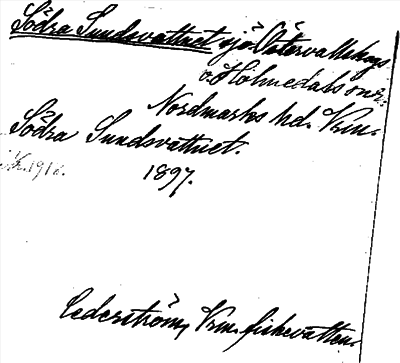 Södra Sundsvattnet sjö Östervallskogs
o. Holmedals snr.
Nordmarks hd. Vrm.
Södra Sundsvattnet.
1918.
1897.
Cederström, Vrm. fiskevatten.